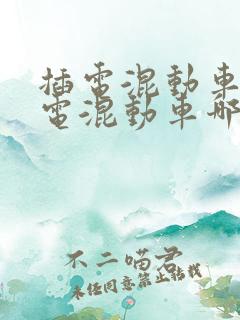 插電混動車
電混動車哪
不二喵君
未任同意禁止轉載